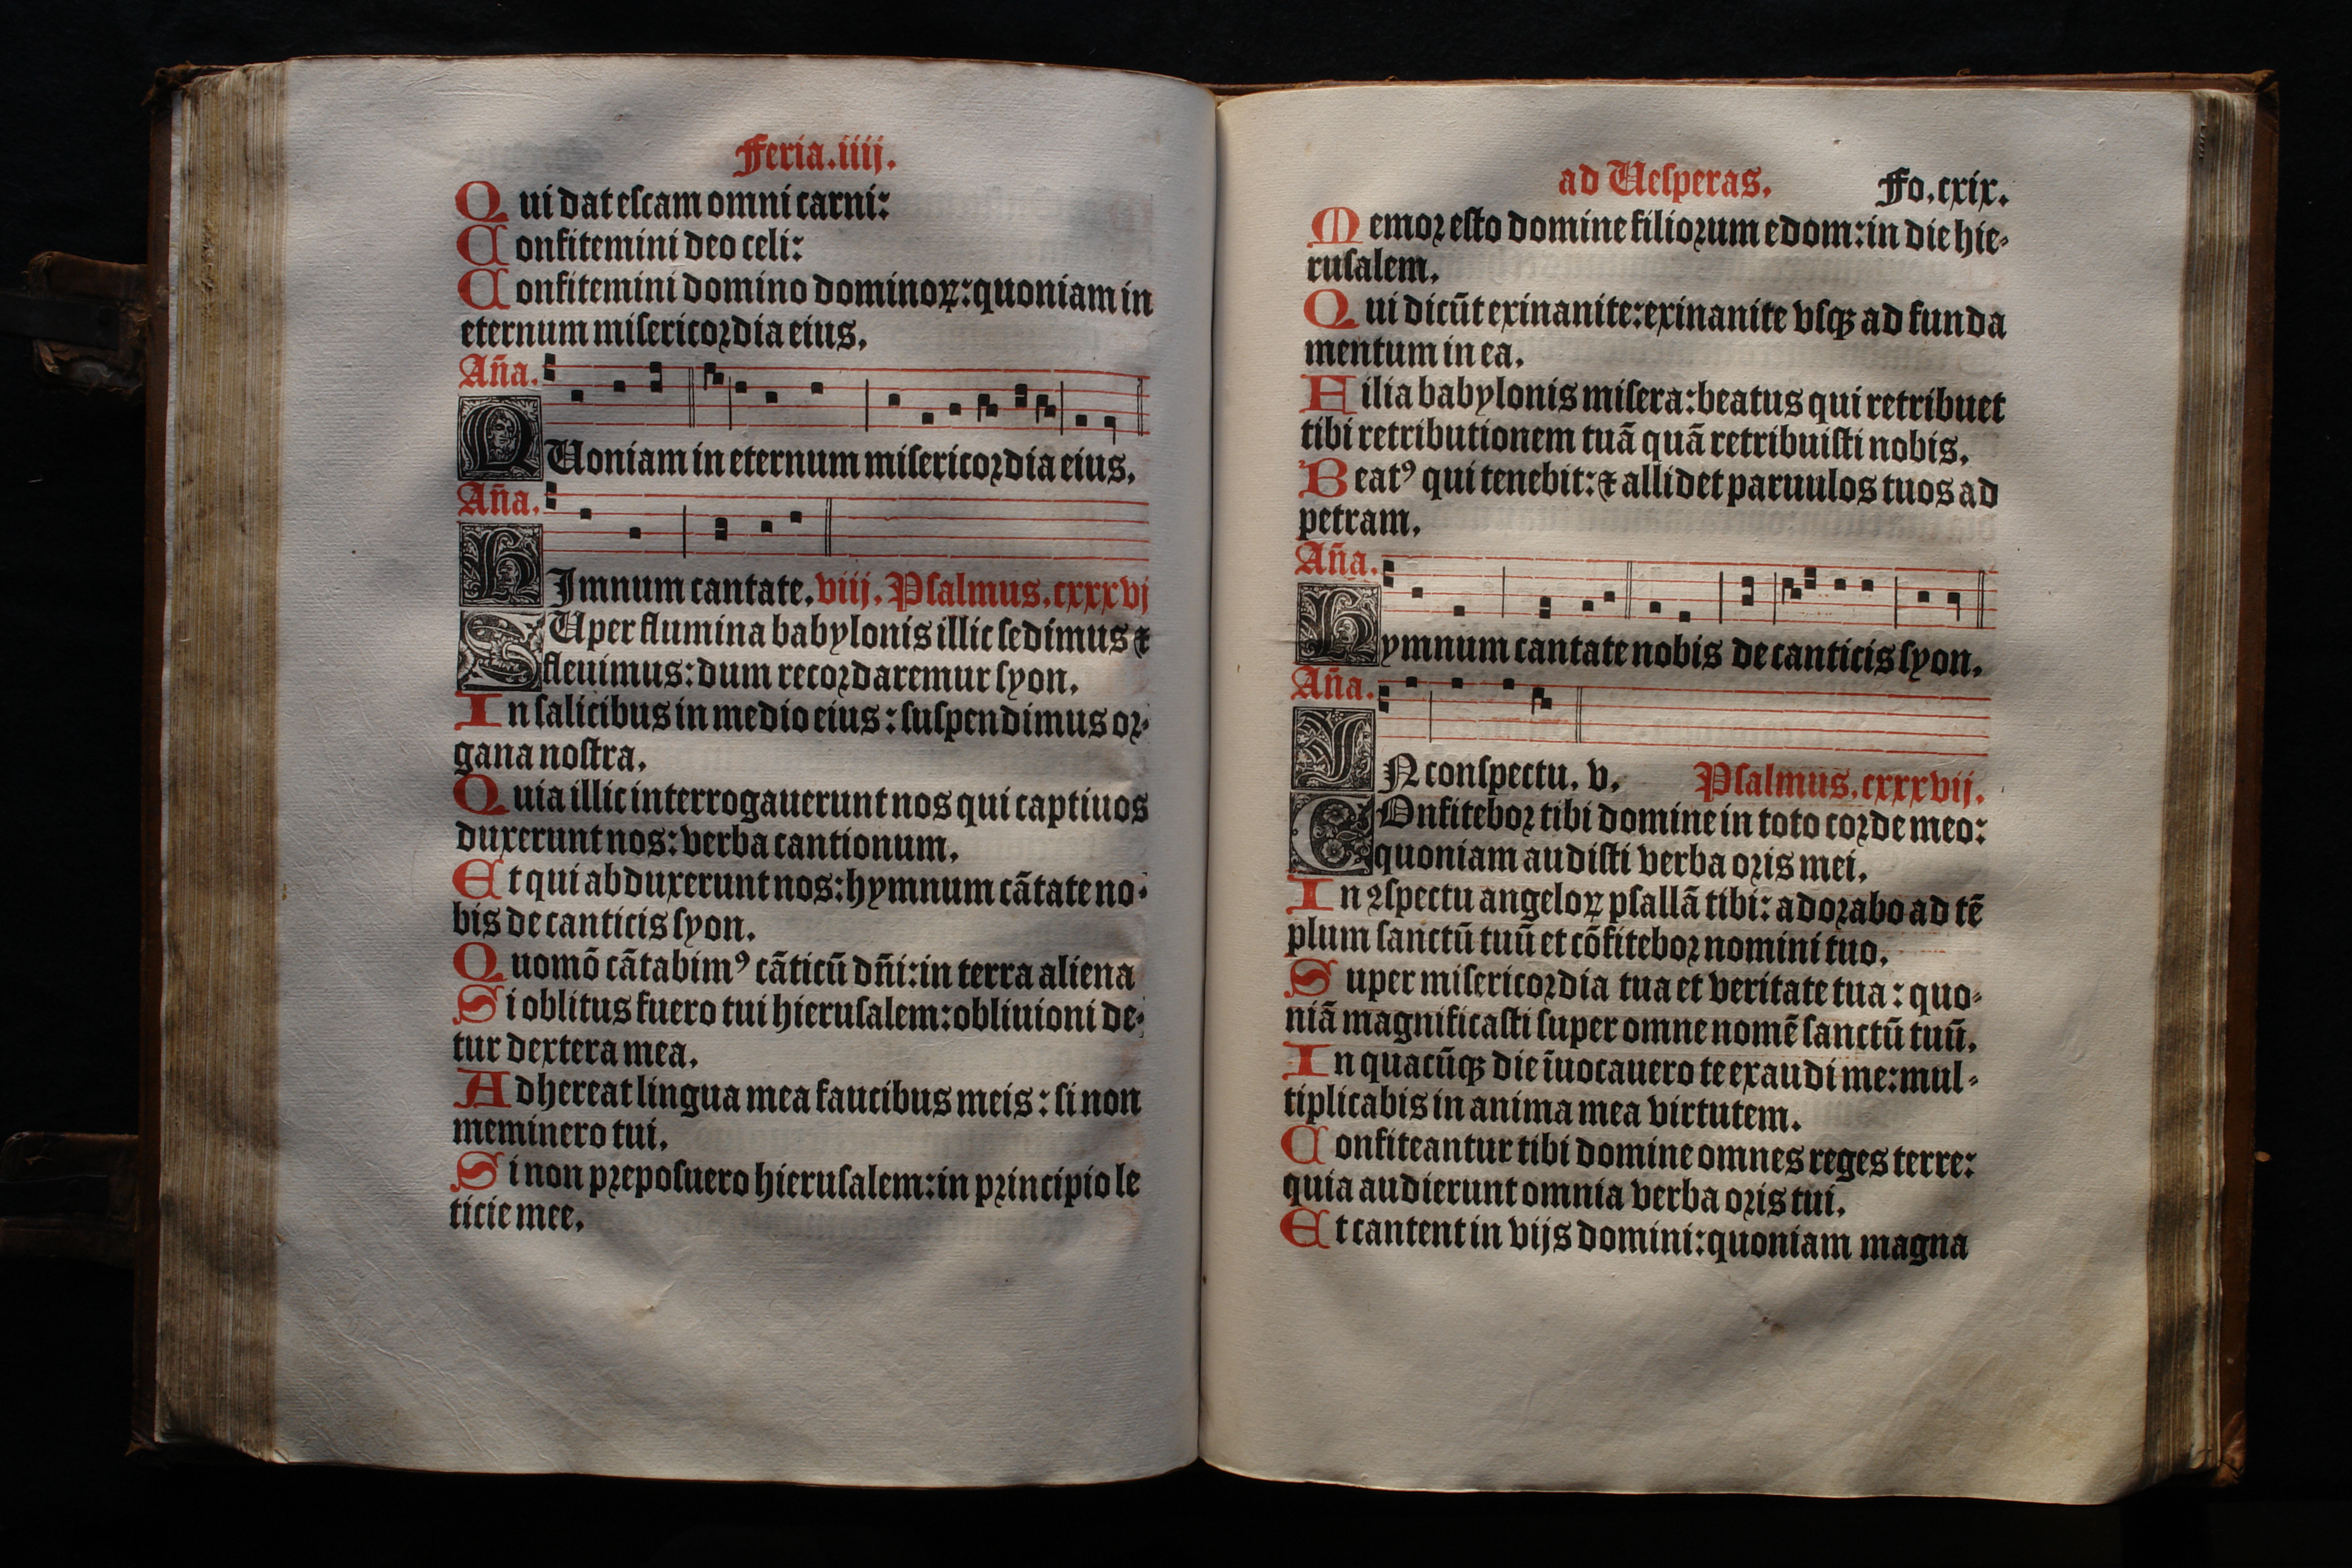 Feria.iiij.
Qui dat escam omni carni:
Confitemini deo celi:
Confitemini domino dominoꝝ: quoniam in
eternum misericordia eius.
Aña.
QUoniam in eternum misericordia eius.
Aña.
HImnum cantate. viij. Psalmus. cxxxvj
SUper flumina babylonis illic sedimus ⁊
fleuimus: dum recordaremur syon.
In salicibus in medio eius: suspendimus or-
gana nostra.
Quia illic interrogauerunt nos qui captiuos
duxerunt nos: verba cantionum.
Et qui abduxerunt nos: hymnum cātate no-
bis de canticis syon.
Quomō cātabimꝰ cāticū dñi: in terra aliena
Si oblitus fuero tui hierusalem: obliuioni de-
tur dextera mea.
Adhereat lingua mea faucibus meis: si non
meminero tui.
Si non preposuero hierusalem: in principio le
ticie mee.
ad Uesperas. Fo.cxix.
Memor esto domine filiorum edom: in die hie-
rusalem.
Qui dicūt exinanite: exinanite vsqꝫ ad funda
mentum in ea.
Filia babylonis misera: beatus qui retribuet
tibi retributionem tuā quā retribuisti nobis.
Beatꝰ qui tenebit: ⁊ allidet paruulos tuos ad
petram.
Aña.
Hymnum cantate nobis de canticis syon.
Aña.
IN conspectu. v. Psalmus. cxxxvij.
COnfitebor tibi domine in toto corde meo:
quoniam audisti verba oris mei.
In ꝯspectu angeloꝝ psallā tibi: adorabo ad tē
plum sanctū tuū et cōfitebor nomini tuo.
Super misericordia tua et veritate tua: quo-
niā magnificasti super omne nomē sanctū tuū.
In quacūqꝫ die īuocauero te exaudi me: mul-
tiplicabis in anima mea virtutem.
Confiteantur tibi domine omnes reges terre:
quia audierunt omnia verba oris tui.
Et cantent in vijs domini: quoniam magna